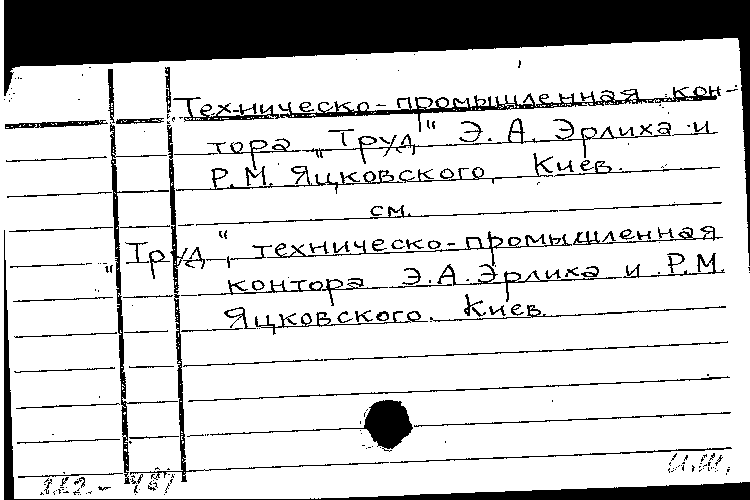 Техническо-промышленная кон-
тора „Труд“ Э. А. Эрлиха и
Р. М. Яцковского, Киев.
см.
„Труд“, техническо-промышленная
контора Э. А. Эрлиха и Р. М.
Яцковского. Киев.
И.Ш.